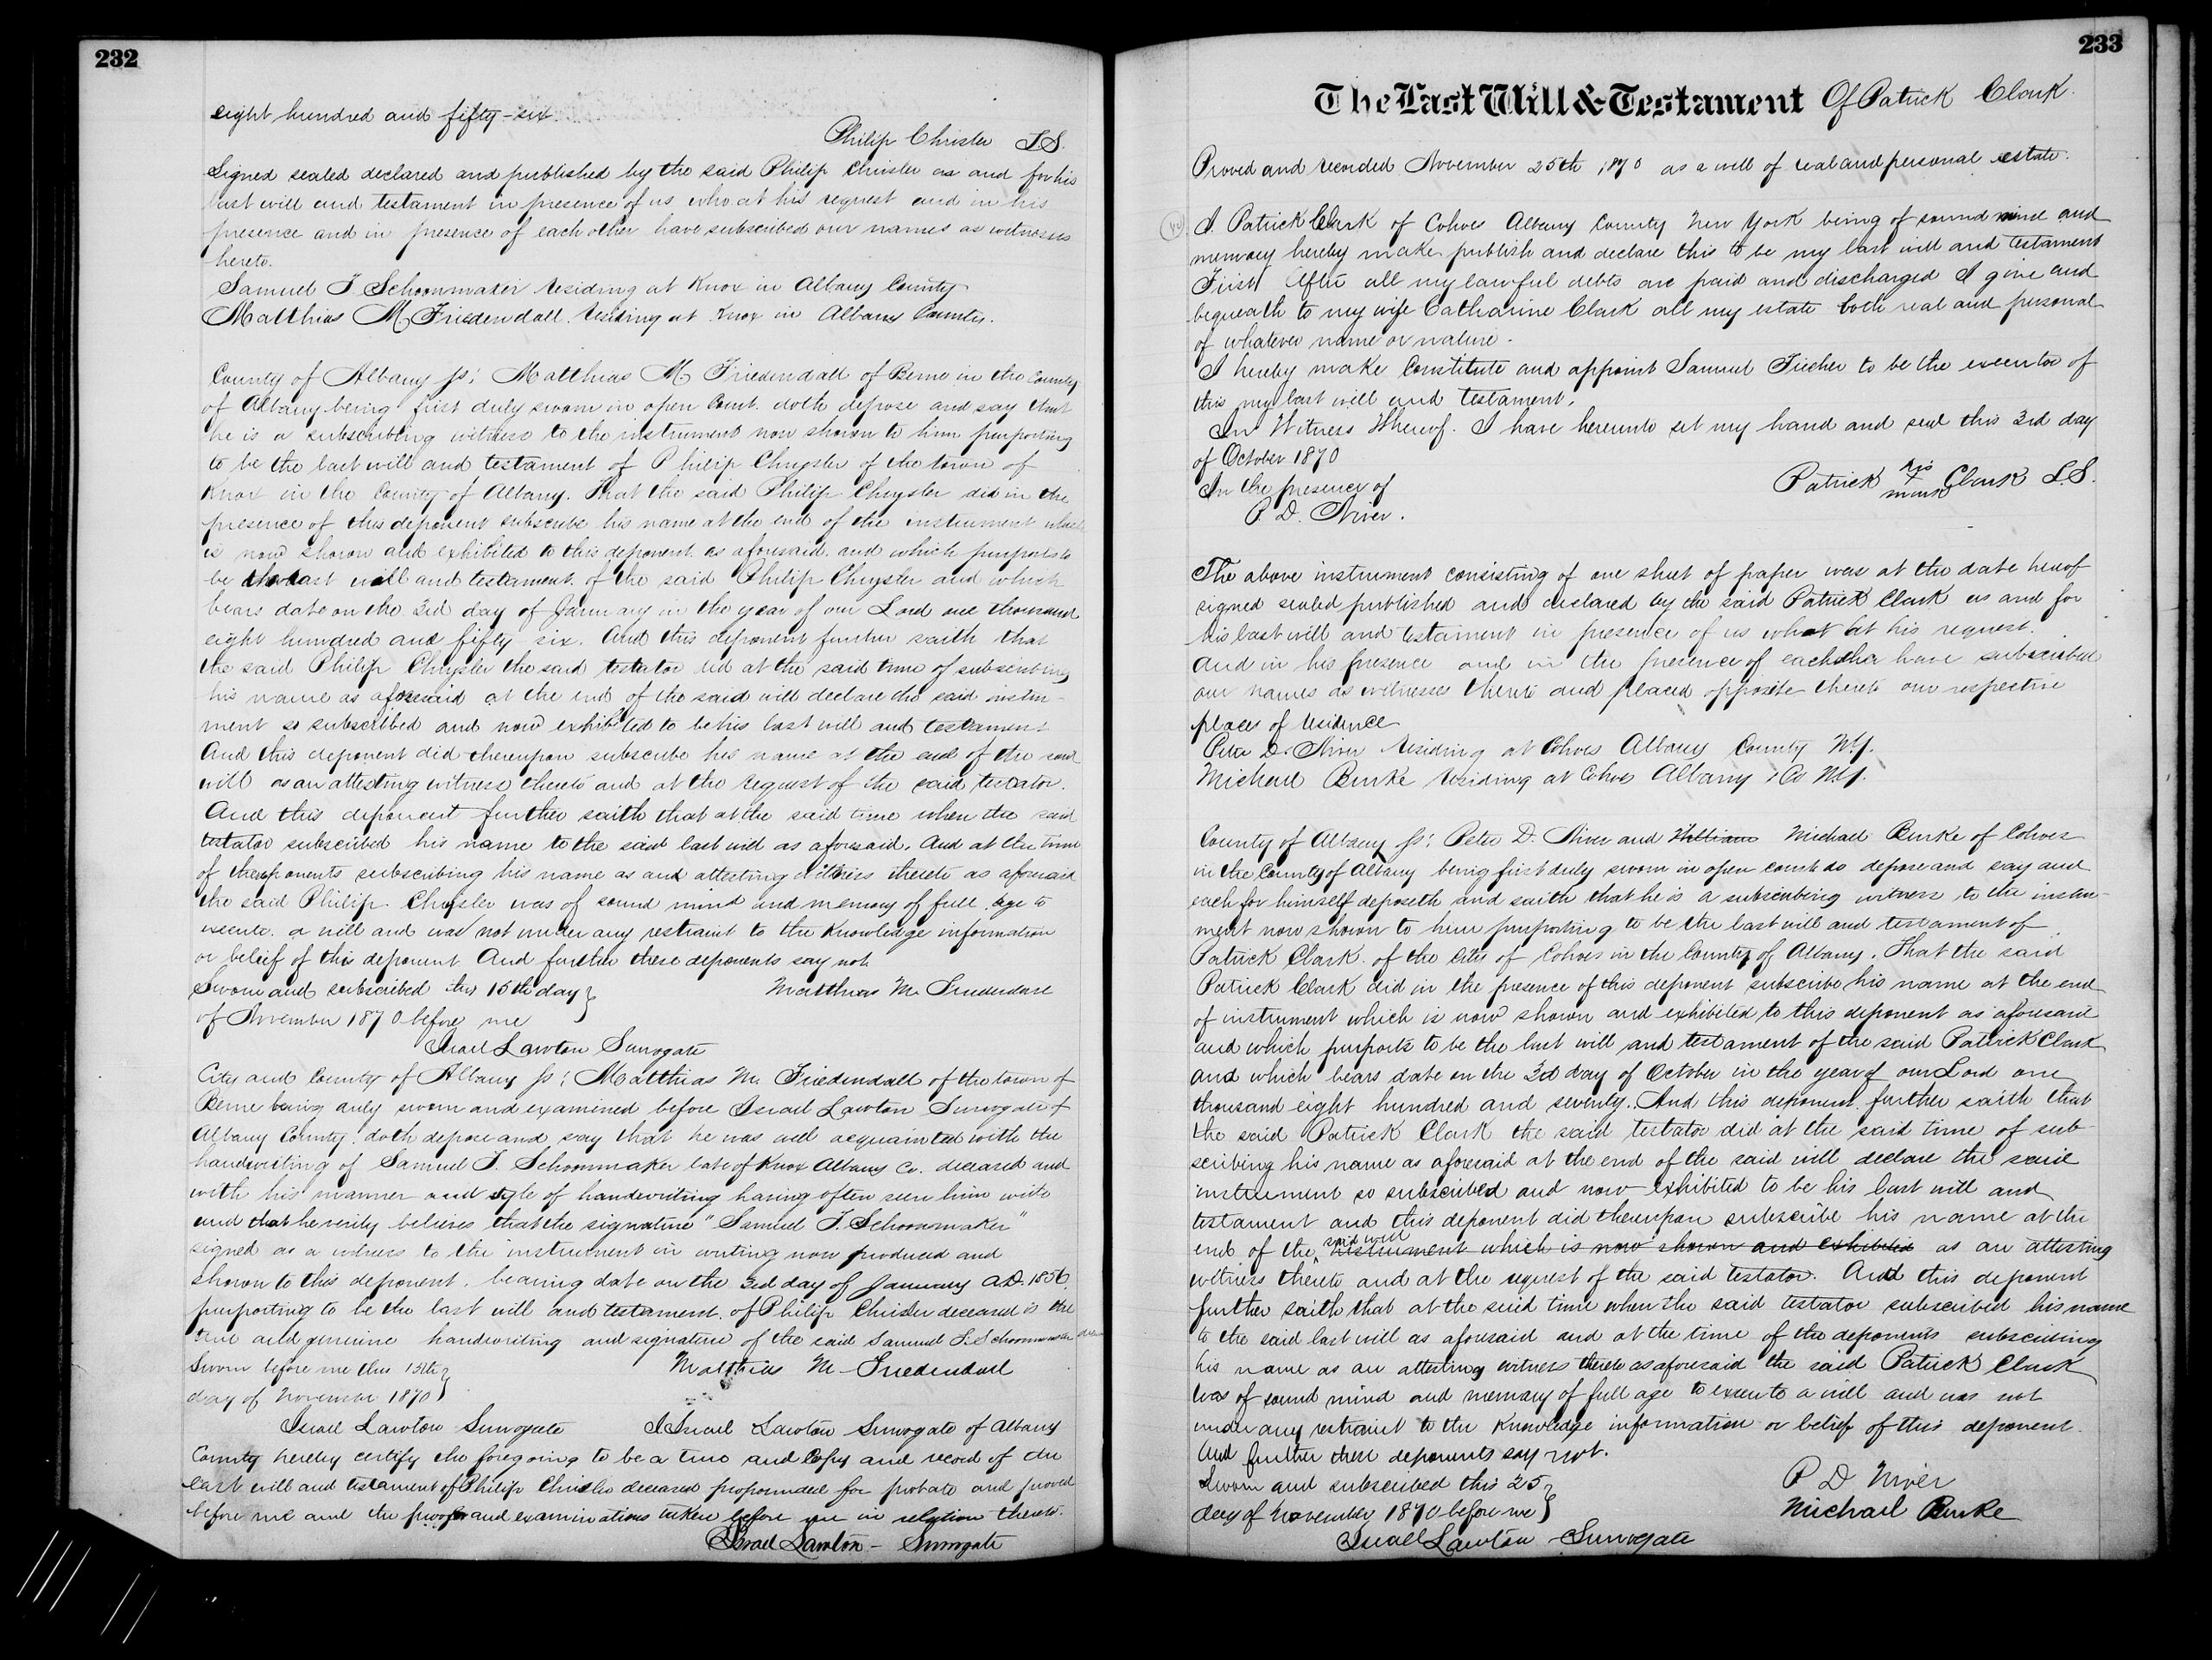 232
eight hundred and fifty-six
Philip Chrisler L.S.
Signed sealed declared and published by the said Philip Chrisler as and for his
last will and testament in presence of us who at his request and in his
presence and in presence of each other have subscribed our names as witnesses
hereto.
Samuel T. Schoonmaker residing at Knox in Albany County
Matthias M Friedendall. residing at Knox in Albany County.
County of Albany ss: Matthias M Friedendall of Berne in the County
of Albany being first duly sworn in open Court. doth depose and say that
he is a subscribing witness to the instrument now shown to him purporting
to be the last will and testament of Philip Chrysler of the town of
Knox in the County of Albany. That the said Philip Chrysler did in the
presence of this deponent subscribe his name at the end of the instrument which
is now shown and exhibited to this deponent as aforesaid. and which purports to
be the last will and testament of the said Philip Chrysler and which
bears date on the 3rd day of January in the year of our Lord one thousand
eight hundred and fifty six. And this deponent further saith that
the said Philip Chrysler the said testator did at the said time of subscribing
his name as aforesaid at the end of the said will declare the said instru
ment so subscribed and now exhibited to be his last will and testament
And this deponent did thereupon subscribe his name at the end of the said
will as an attesting witness thereto and at the request of the said testator.
And this deponent further saith that at the said time when the said
testator subscribed his name to the said last will as aforesaid. And at the time
of the deponents subscribing his name as and attesting witness thereto as aforesaid
the said Philip Chrysler was of sound mind and memory of full age to
execute a will and was not under any restraint to the knowledge information
or beleif of this deponent And further these deponents say not
Sworn and subscribed this 15th day Matthias M. Friedendall
of November 1870 before me
Israel Lawton Surrogate
City and County of Albany ss: Matthias M. Friedendall of the town of
Berne being duly sworn and examined before Israel Lawton Surrogate of
Albany County. doth depose and say that he was well acquainted with the
handwriting of Samuel T. Schoonmaker late of Knox Albany Co. deceased and
with his manner and style of handwriting having often seen him write
and that he verily believes that the signature "Samuel T. Schoonmaker"
signed as a witness to the instrument in writing now produced and
shown to this deponent. bearing date on the 3rd day of January A.D. 1856
purporting to be the last will and testament of Philip Chrisler deceased is the
true and genuine handwriting and signature of the said Samuel T. Schoonmaker
Sworn before me this 15th Matthias M. Friedendall
day of November 1870
Israel Lawton Surrogate I Israel Lawton Surrogate of Albany
County hereby certify the foregoing to be a true and Copy and record of the
last will and testament of Philip Chrisler deceased propounded for probate and proved
before me and the proofs and examinations taken before me in relation thereto.
Israel Lawton - Surrogate
233
The Last Will & Testament Of Patrick Clark.
Proved and recorded November 25th 1870 as a will of real and personal estate.
I Patrick Clark of Cohoes Albany County New York being of sound mind and
memory hereby make publish and declare this to be my last will and testament
First After all my lawful debts are paid and discharged I give and
bequeath to my wife Catharine Clark all my estate both real and personal
of whatever name or nature.
I hereby make Constitute and appoint Samuel to be the executor of
this my last will and testament.
In Witness Whereof. I have hereunto set my hand and seal this 3rd day
of October 1870
In the presence of Patrick his X mark Clark L.S.
P. D. Niver.
The above instrument consisting of one sheet of paper was at the date hereof
signed sealed published and declared by the said Patrick Clark as and for
his last will and testament in presence of us what at his request.
and in his presence and in the presence of each other have subscribed
our names as witnesses thereto and placed opposite thereto our respective
places of residence
Peter D. Niver residing at Cohoes Albany County N.Y.
Michael Burke residing at Cohoes Albany Co N.Y.
County of Albany ss: Peter D. Niver and William Michael Burke of Cohoes
in the County of Albany being first duly sworn in open court do depose and say and
each for himself deposeth and saith that he is a subscribing witness to the instru-
ment now shown to him purporting to be the last will and testament of
Patrick Clark. of the City of Cohoes in the County of Albany. That the said
Patrick Clark did in the presence of this deponent subscribe his name at the end
of instrument which is now shown and exhibited to this deponent as aforesaid
and which purports to be the last will and testament of the said Patrick Clark
and which bears date on the 3d day of October in the year of our Lord one
thousand eight hundred and seventy. And this deponent further saith that
the said Patrick Clark the said testator did at the said time of sub-
scribing his name as aforesaid at the end of the said will declare the said
instrument so subscribed and now exhibited to be his last will and
testament and this deponent did thereupon subscribe his name at the
end of the said will instrument which is now shown and exhibited as an attesting
witness thereto and at the request of the said testator. And this deponent
further saith that at the said time when the said testator subscribed his name
to the said last will as aforesaid and at the time of the deponents subscribing
his name as an attesting witness thereto as aforesaid the said Patrick Clark
was of sound mind and memory of full age to execute a will and was not
under any restraint to the knowledge information or belief of this deponent.
And further these deponents say not.
Sworn and subscribed this 25 P D Niver
day of November 1870 before me Michael Burke
Israel Lawton - Surrogate